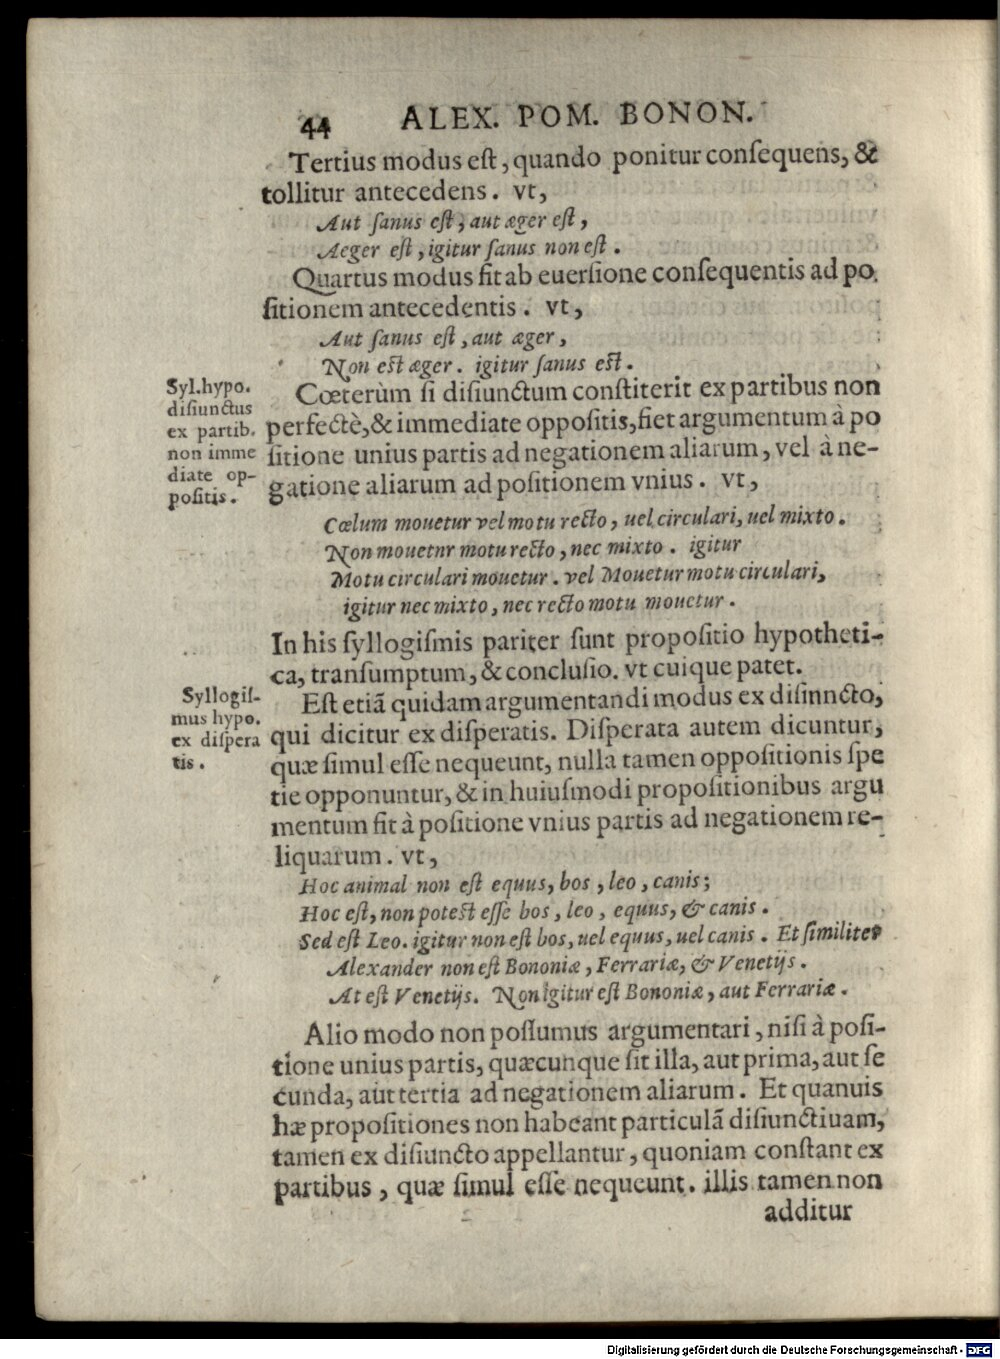 44 ALEX. POM. BONON.
Tertius modus eſt, quando ponitur conſequens, &
tollitur antecedens. vt,
Aut ſanus eſt, aut æger eſt,
Aeger eſt, igitur ſanus non eſt.
Quartus modus fit ab euerſione conſequentis ad po
ſitionem antecedentis. vt,
Aut ſanus eſt, aut æger,
Non est æger. igitur ſanus est.
Syl. hypo.
diſiunctus
ex partib.
non imme
diate op-
poſitis.
Cœterùm ſi diſiunctum conſtiterit ex partibus non
perfectè, & immediate oppoſitis, fiet argumentum à po
ſitione unius partis ad negationem aliarum, vel à ne-
gatione aliarum ad poſitionem vnius. vt,
Cœlum mouetur vel motu recto, uel circulari, uel mixto.
Non mouetnr motu recto, nec mixto. igitur
Motu circulari mouetur. vel Mouetur motu circulari,
igitur nec mixto, nec recto motu mouetur.
In his ſyllogiſmis pariter ſunt propoſitio hypotheti-
ca, tranſumptum, & concluſio. vt cuique patet.
Syllogiſ-
mus hypo.
ex diſpera
tis.
Eſt etiã quidam argumentandi modus ex diſinncto,
qui dicitur ex diſperatis. Diſperata autem dicuntur,
quæ ſimul eſſe nequeunt, nulla tamen oppoſitionis ſpe
tie opponuntur, & in huiuſmodi propoſitionibus argu
mentum fit à poſitione vnius partis ad negationem re-
liquarum. vt,
Hoc animal non eſt equus, bos, leo, canis;
Hoc eſt, non potest eſſe bos, leo, equus, & canis.
Sed eſt Leo. igitur non eſt bos, uel equus, uel canis. Et ſimiliter
Alexander non eſt Bononiæ, Ferrariæ, & Venetijs.
At eſt Venetijs. Non igitur eſt Bononiæ, aut Ferrariæ.
Alio modo non poſſumus argumentari, niſi à poſi-
tione unius partis, quæcunque ſit illa, aut prima, aut ſe
cunda, aut tertia ad negationem aliarum. Et quanuis
hæ propoſitiones non habeant particulã diſiunctiuam,
tamen ex diſiuncto appellantur, quoniam conſtant ex
partibus, quæ ſimul eſſe nequeunt. illis tamen non
additur
Digitalisierung gefördert durch die Deutsche Forschungsgemeinschaft - DFG